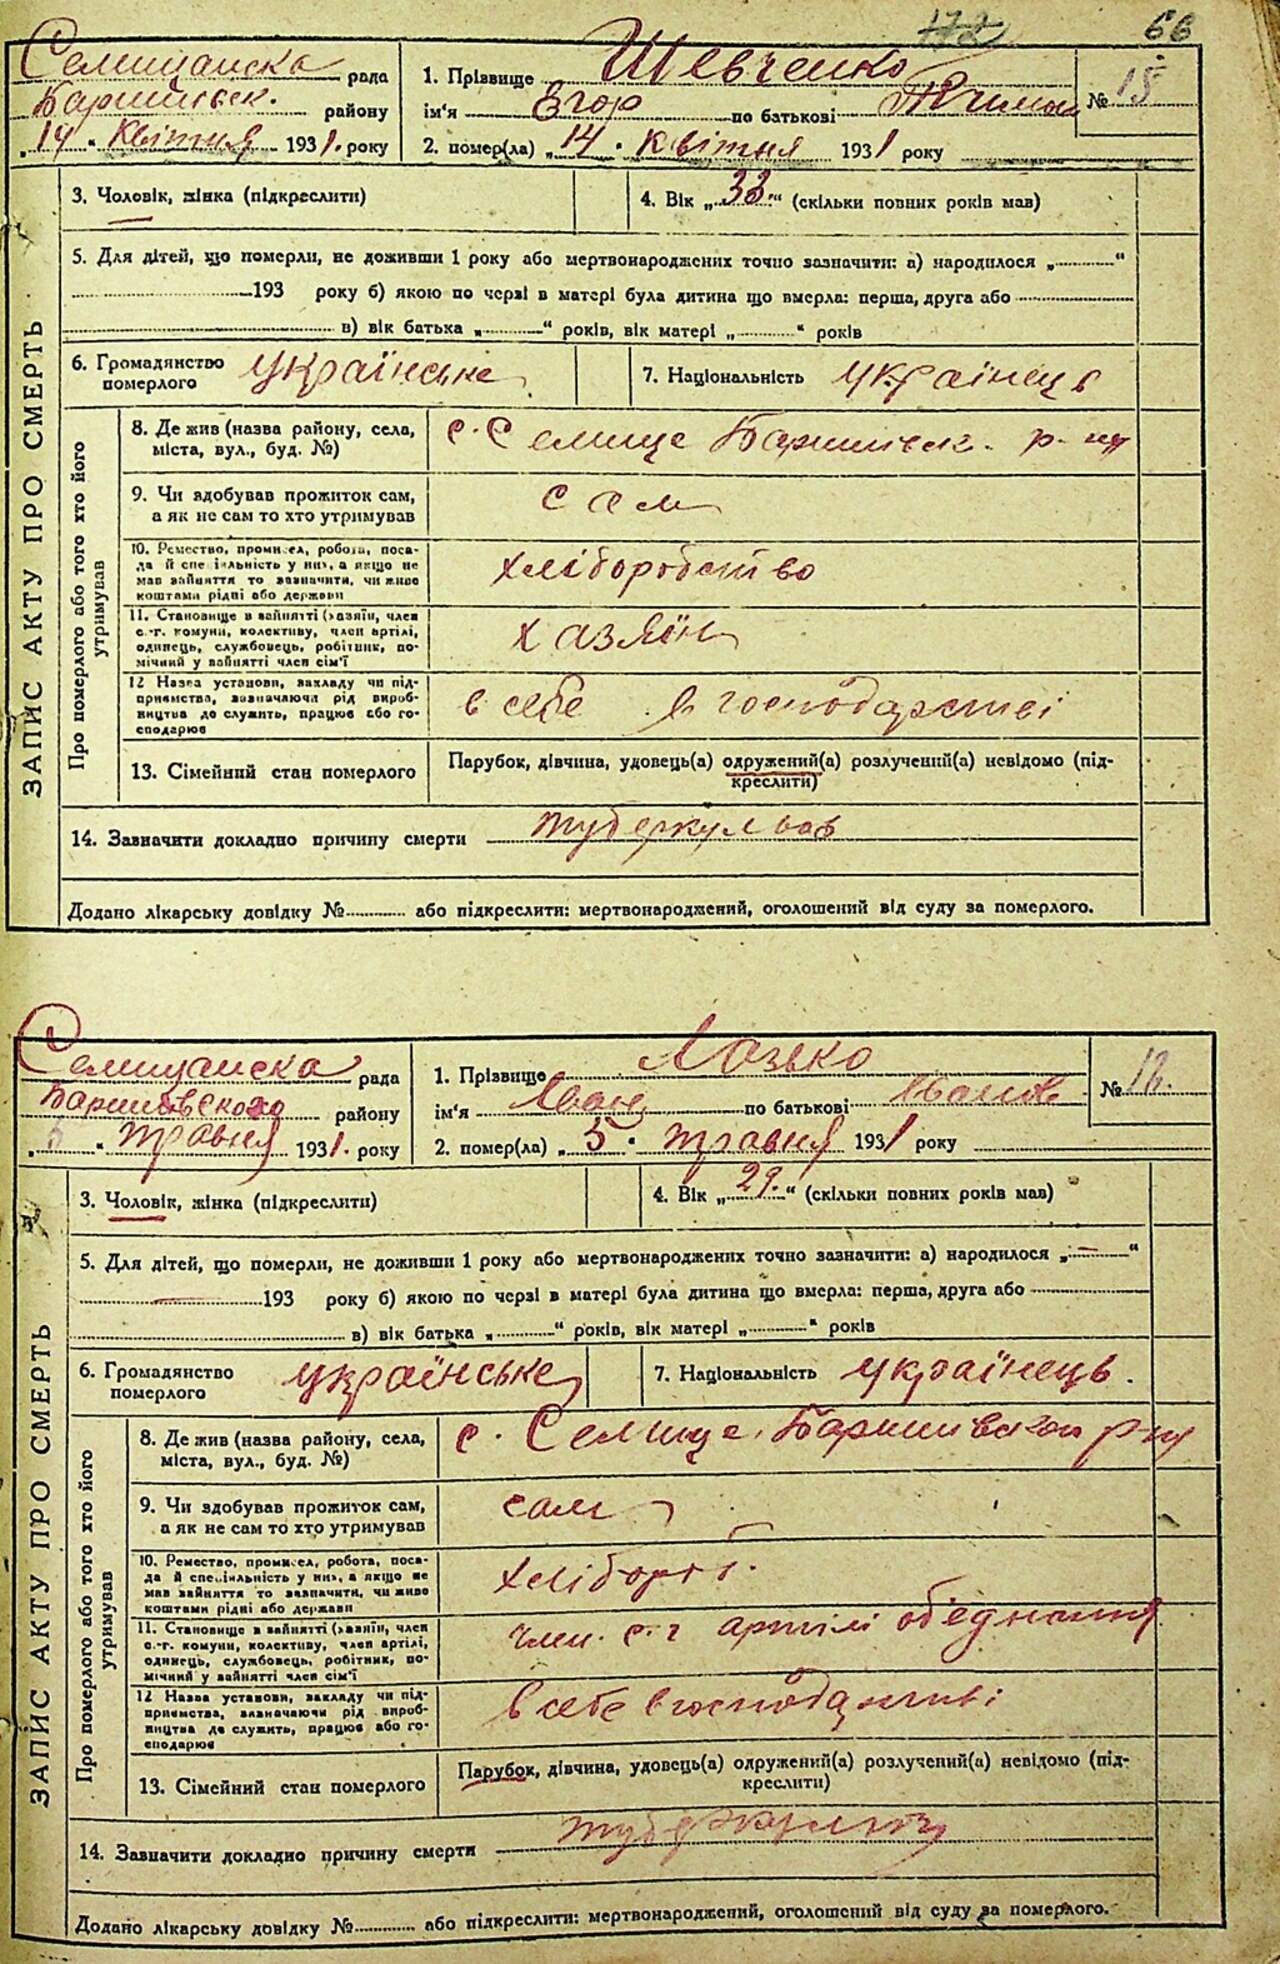 172
66
Селищанска рада
Баришівськ. району
„14“ Квітня 1931. року
1. Прізвище Шевченко
ім'я Єгор по батькові
№ 15
2. помер(ла) „14“ Квітня 1931 року
3. Чоловік, жінка (підкреслити)
4. Вік „33“ (скільки повних років мав)
5. Для дітей, що померли, не доживши 1 року або мертвонароджених точно зазначити: а) народилося „ “
193 року б) якою по черзі в матері була дитина що вмерла: перша, друга або
в) вік батька „ “ років, вік матері „ “ років
6. Громадянство померлого українське
7. Національність українець
ЗАПИС АКТУ ПРО СМЕРТЬ
Про померлого або того хто його утримував
8. Де жив (назва району, села, міста, вул., буд. №)
с. Селище Баришівськ. р-ну
9. Чи здобував прожиток сам, а як не сам то хто утримував
сам
10. Ремество, промисел, робота, посада й спеціяльність у них, а якщо не мав зайняття то зазначити, чи живе коштами рідні або держави
хліборобство
11. Становище в зайнятті (хазяїн, член с.-г. комуни, колективу, член артілі, одинець, службовець, робітник, помічний у зайнятті член сім'ї
хазяїн
12 Назва установи, закладу чи підприємства, зазначаючи рід виробництва де служить, працює або господарює
в себе в господарстві
13. Сімейний стан померлого
Парубок, дівчина, удовець(а) одружений(а) розлучений(а) невідомо (підкреслити)
14. Зазначити докладно причину смерти туберкульоз
Додано лікарську довідку № або підкреслити: мертвонароджений, оголошений від суду за померлого.
Селищанска рада
Баришівского району
„5“ травня 1931. року
1. Прізвище Лазько
ім'я Іван по батькові Іванов.
№ 16.
2. помер(ла) „5“ травня 1931 року
3. Чоловік, жінка (підкреслити)
4. Вік „29.“ (скільки повних років мав)
5. Для дітей, що померли, не доживши 1 року або мертвонароджених точно зазначити: а) народилося „—“
193 року б) якою по черзі в матері була дитина що вмерла: перша, друга або
в) вік батька „ “ років, вік матері „ “ років
6. Громадянство померлого українське
7. Національність українець.
ЗАПИС АКТУ ПРО СМЕРТЬ
Про померлого або того хто його утримував
8. Де жив (назва району, села, міста, вул., буд. №)
с. Селище, Баришівском р-ну
9. Чи здобував прожиток сам, а як не сам то хто утримував
сам
10. Ремество, промисел, робота, посада й спеціяльність у них, а якщо не мав зайняття то зазначити, чи живе коштами рідні або держави
хлібороб.
11. Становище в зайнятті (хазяїн, член с.-г. комуни, колективу, член артілі, одинець, службовець, робітник, помічний у зайнятті член сім'ї
член. с.г артілі об'єднання
12 Назва установи, закладу чи підприємства, зазначаючи рід виробництва де служить, працює або господарює
в себе в господарстві
13. Сімейний стан померлого
Парубок, дівчина, удовець(а) одружений(а) розлучений(а) невідомо (підкреслити)
14. Зазначити докладно причину смерти туберкульоз
Додано лікарську довідку № або підкреслити: мертвонароджений, оголошений від суду за померлого.